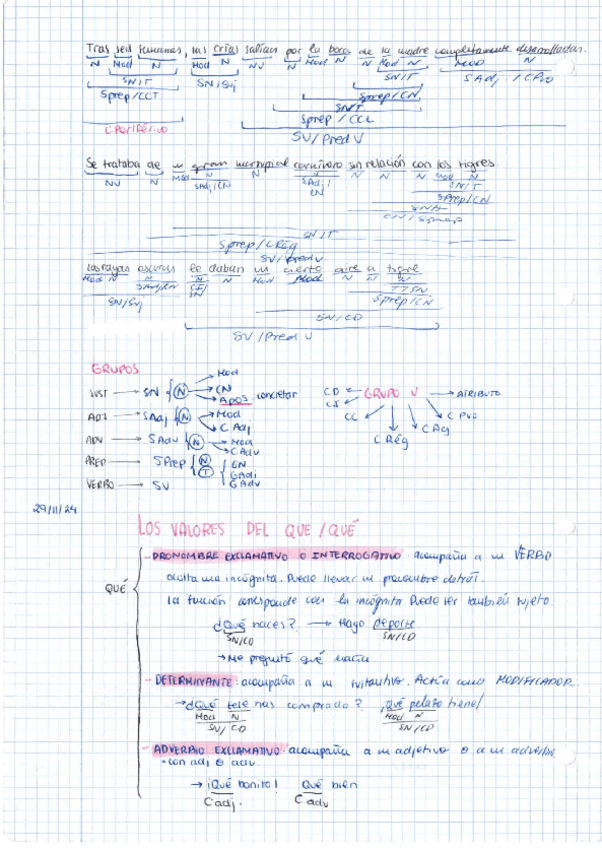 Tras seis semanas, las crías salían por la boca de la madre completamente desarrolladas.
N Mod N Mod N NV N Mod N N Mod N Mod N
SN/T SN/Suj SN/T SAdj / CPvo
Sprep/CCT Sprep/CN
SN/T
Sprep / CCL
SV/Pred V
Se trataba de un gran marsupial carnívoro sin relación con los tigres.
NV N Mod N N N N N Mod N
SAdj/CN SAdj/ SN/T
CN Sprep/CN
SN/T
CN/Sprep
SN/T
Sprep/CReg
SV/Pred V
Las rayas oscuras le daban un cierto aire a tigre
Mod N N N N Mod Mod N N
SN/Suj CI/
SN Sprep/CN
SN/CD
SV/Pred V
GRUPOS
SUST → SN { N Mod
CN
Apos concretar
ADJ → SAdj { N Mod
C Adj
ADV → SAdv { N Mod
C Adv
PREP → SPrep { N
T { GAdj
GAdv
VERBO → SV
CD ← GRUPO V → ATRIBUTO
CI
CC C Pvo
C Reg C Ag
29/11/24
LOS VALORES DEL QUE/QUÉ
QUÉ
- PRONOMBRE EXCLAMATIVO O INTERROGATIVO acompaña a un VERBO
oculta una incógnita. Puede llevar un pronombre detrás.
La función corresponde con la incógnita Puede ser también sujeto.
¿Qué haces? → Hago deporte
SN/CD SN/CD
→ Me preguntó qué hacía.
- DETERMINANTE: acompaña a un sustantivo. Actúa como MODIFICADOR.
→ ¿Qué tele has comprado? ¡qué pelazo tiene!
Mod N Mod N
SN/CD SN/CD
- ADVERBIO EXCLAMATIVO acompaña a un adjetivo o a un adverbio
• con adj o adv.
→ ¡Qué bonito! Qué bien
C adj. C adv